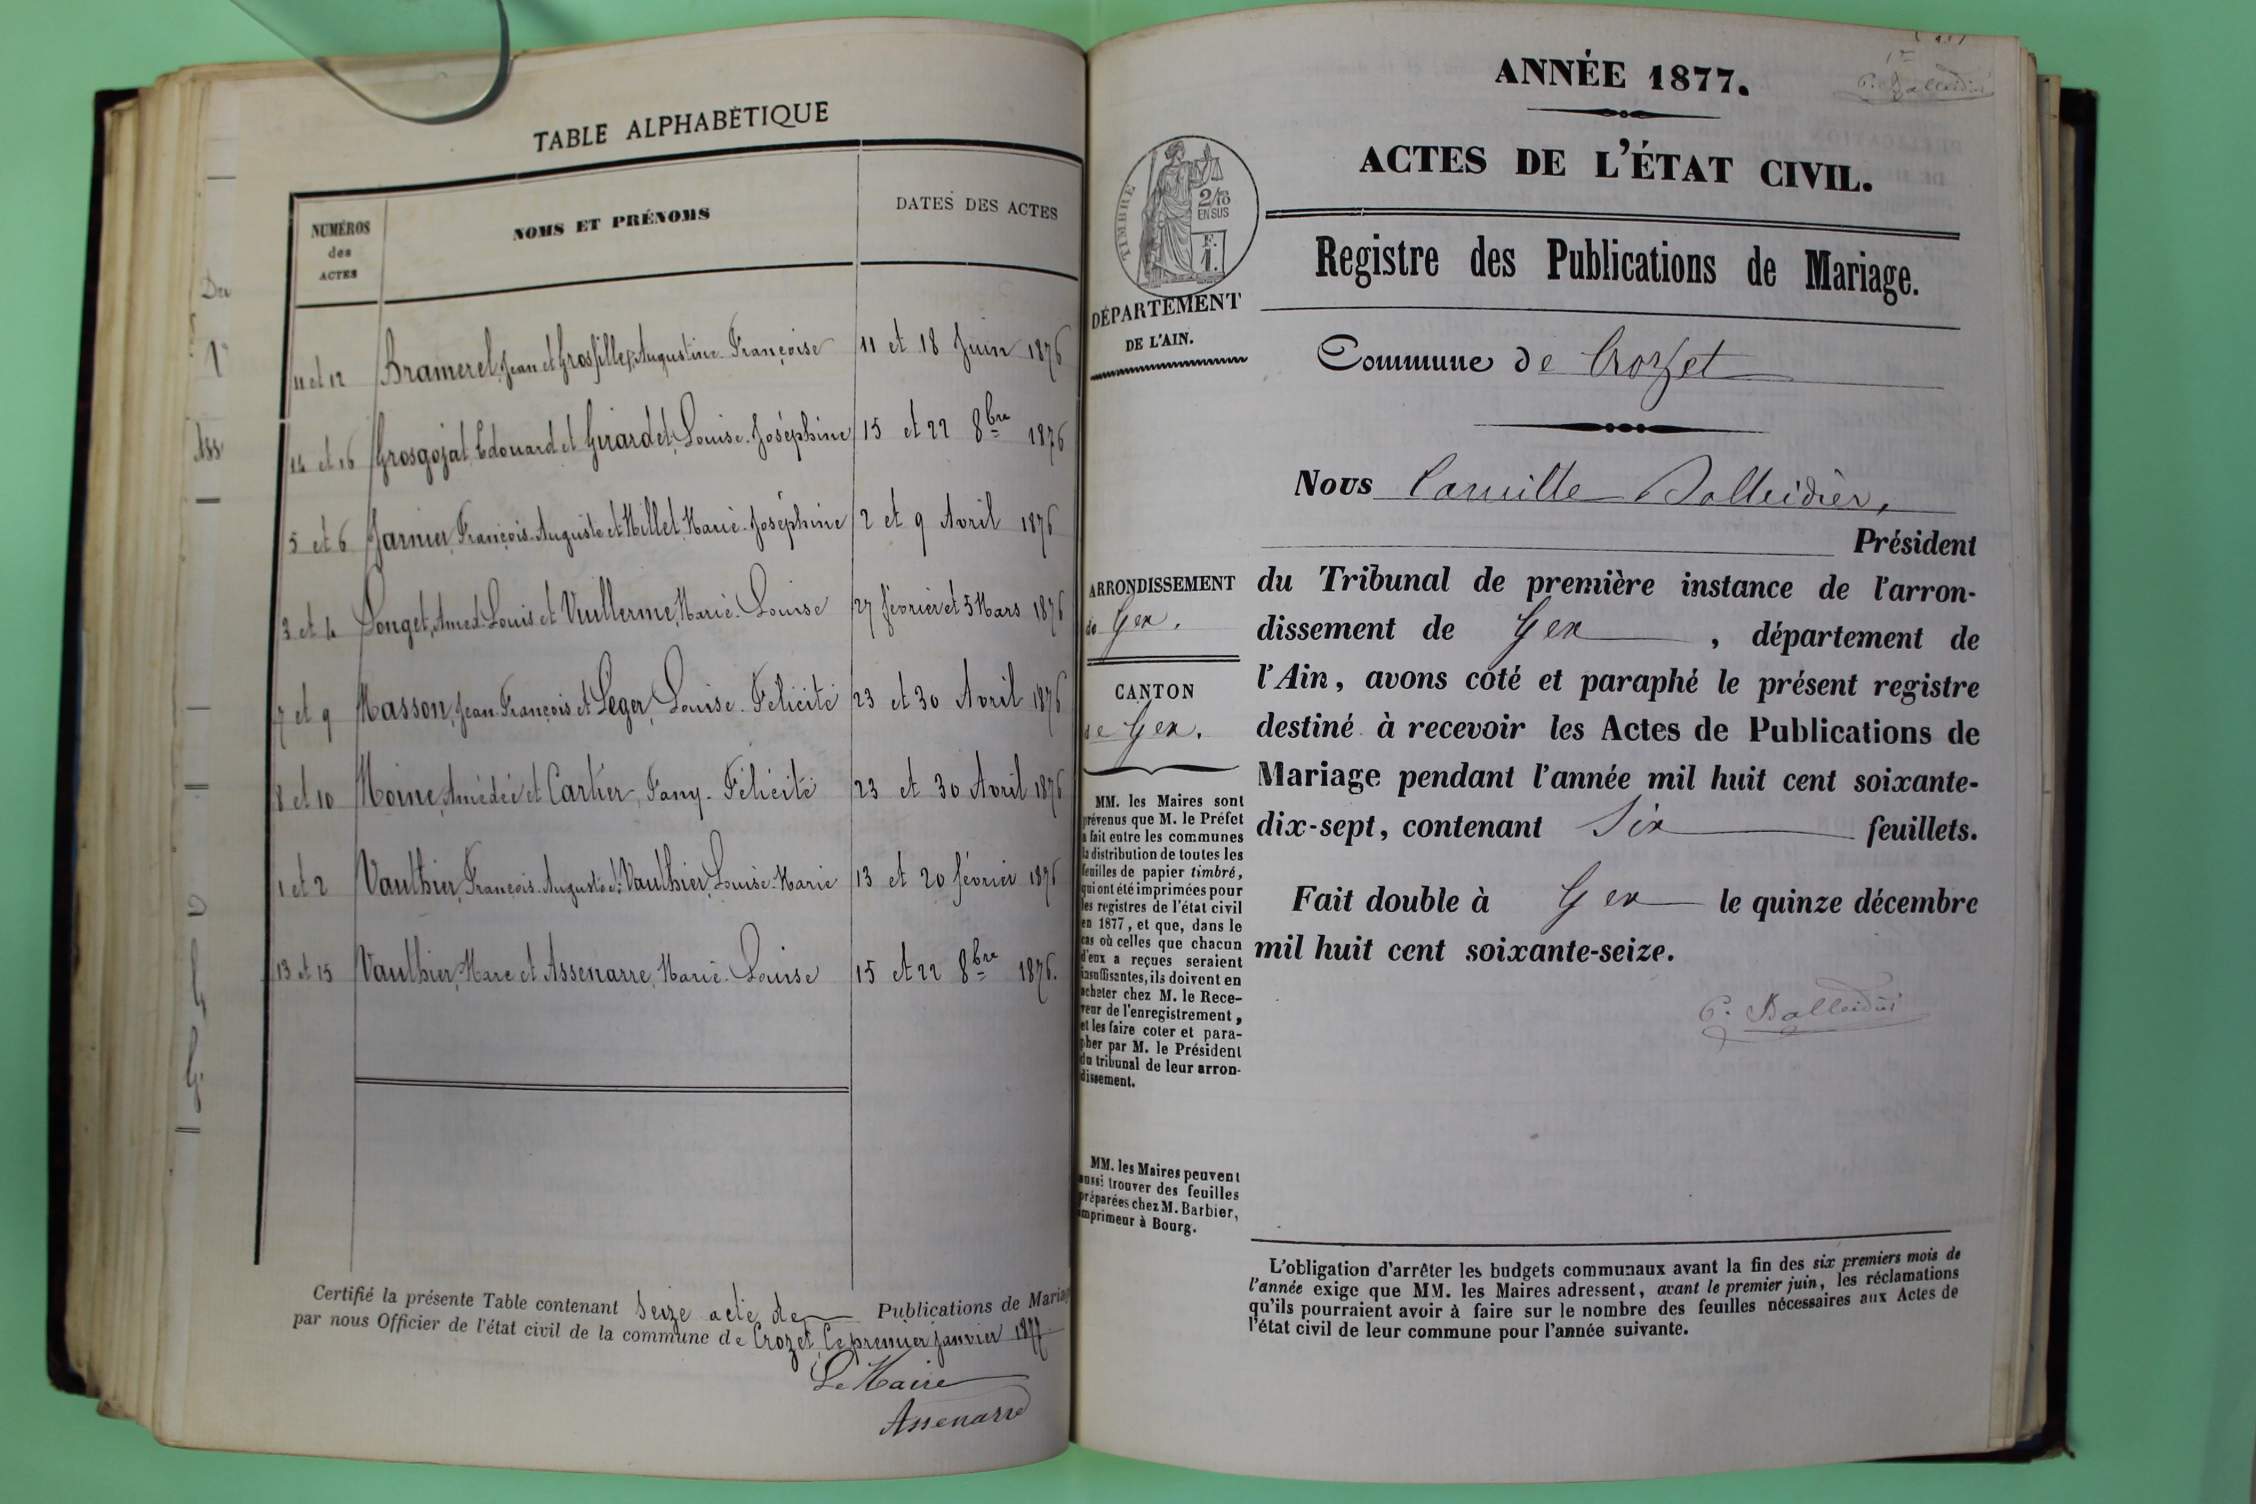 TABLE ALPHABÉTIQUE
NUMÉROS des ACTES
NOMS ET PRÉNOMS
DATES DES ACTES
11 et 12 Bramerel, Jean et Grosfilley, Augustine Françoise 11 et 18 Juin 1876
14 et 16 Grosgojat, Edouard et Girardet, Louise-Joséphine 15 et 22 8bre 1876
5 et 6 Jarnier, François-Auguste et Millet Marie-Joséphine 2 et 9 Avril 1876
3 et 4 Longet, Amed. Louis et Vuillerme, Marie-Louise 27 février et 5 Mars 1876
7 et 9 Masson, Jean-François et Léger, Louise-Félicité 23 et 30 Avril 1876
8 et 10 Moine, Amédée et Cartier, Fany-Félicité 23 et 30 Avril 1876
1 et 2 Vaulthier, François-Auguste et Vaulthier, Louise-Marie 13 et 20 février 1876
13 et 15 Vaulthier, Marc et Assenarre, Marie-Louise 15 et 22 8bre 1876.
Certifié la présente Table contenant Seize acte de Publications de Mariage
par nous Officier de l'état civil de la commune de Crozet, Ce premier janvier 1877
Le Maire
Assenarre
ANNÉE 1877.
1er
C. Balleidier
ACTES DE L'ÉTAT CIVIL.
TIMBRE
2/10
EN SUS
F.
1.
Registre des Publications de Mariage.
DÉPARTEMENT
DE L'AIN.
Commune de Crozet
Nous Camille Balleidier,
Président
du Tribunal de première instance de l'arron-
dissement de Gex, département de
l'Ain, avons coté et paraphé le présent registre
destiné à recevoir les Actes de Publications de
Mariage pendant l'année mil huit cent soixante-
dix-sept, contenant Six feuillets.
Fait double à Gex le quinze décembre
mil huit cent soixante-seize.
C. Balleidier
ARRONDISSEMENT
de Gex.
CANTON
de Gex.
MM. les Maires sont
prévenus que M. le Préfet
a fait entre les communes
la distribution de toutes les
feuilles de papier timbré,
qui ont été imprimées pour
les registres de l'état civil
en 1877, et que, dans le
cas où celles que chacun
d'eux a reçues seraient
insuffisantes, ils doivent en
acheter chez M. le Rece-
veur de l'enregistrement,
et les faire coter et para-
pher par M. le Président
du tribunal de leur arron-
dissement.
MM. les Maires peuvent
aussi trouver des feuilles
préparées chez M. Barbier,
imprimeur à Bourg.
L'obligation d'arrêter les budgets communaux avant la fin des six premiers mois de
l'année exige que MM. les Maires adressent, avant le premier juin, les réclamations
qu'ils pourraient avoir à faire sur le nombre des feuilles nécessaires aux Actes de
l'état civil de leur commune pour l'année suivante.